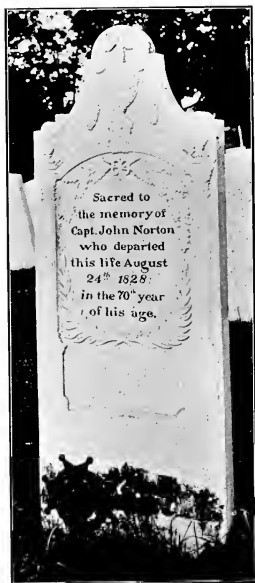 Sacred to
the memory of
Capt. John Norton
who departed
this life August
24th 1828:
in the 70th year
of his age.